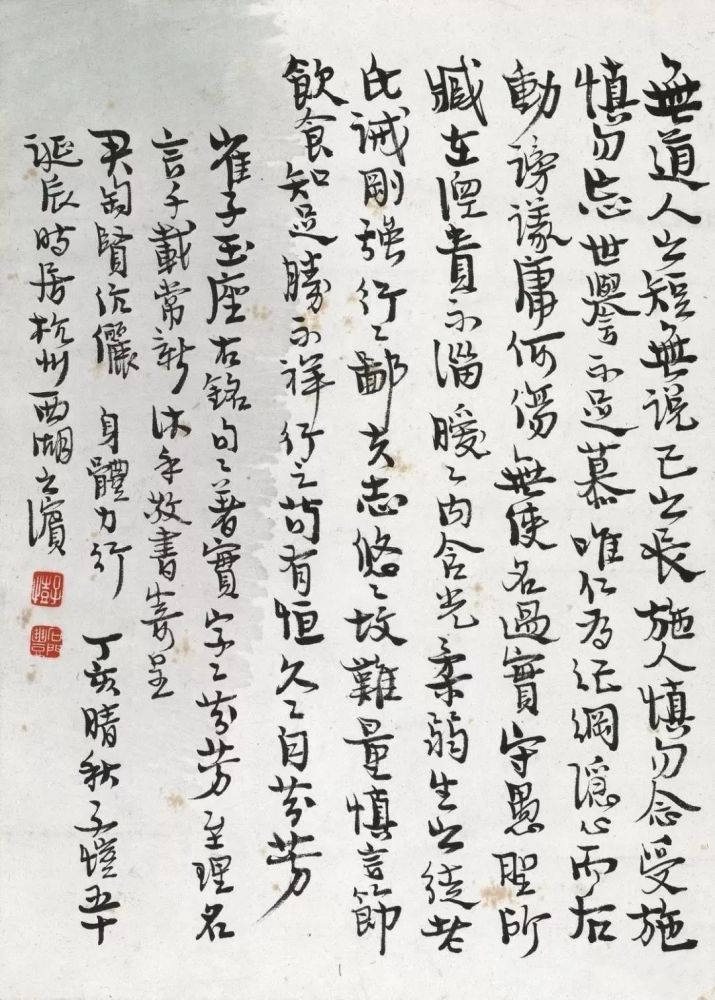 無道人之短無说己之長施人慎勿念受施
慎勿忘世譽不足慕唯仁为纪綱隐心而后
動謗議庸何傷無使名過實守愚聖所
臧在涅貴不淄曖〻内含光柔弱生之徒老
氏诫剛强行〻鄙夫志悠〻故難量慎言節
飲食知足勝不祥行之苟有恒久〻自芬芳
崔子玉座右銘句〻著實字〻芬芳至理名
言千載常新沐手敬書寿呈
君匋賢伉儷 身體力行 丁亥晴秋子愷五十
誕辰時居杭州西湖之濱
子愷
石門豐